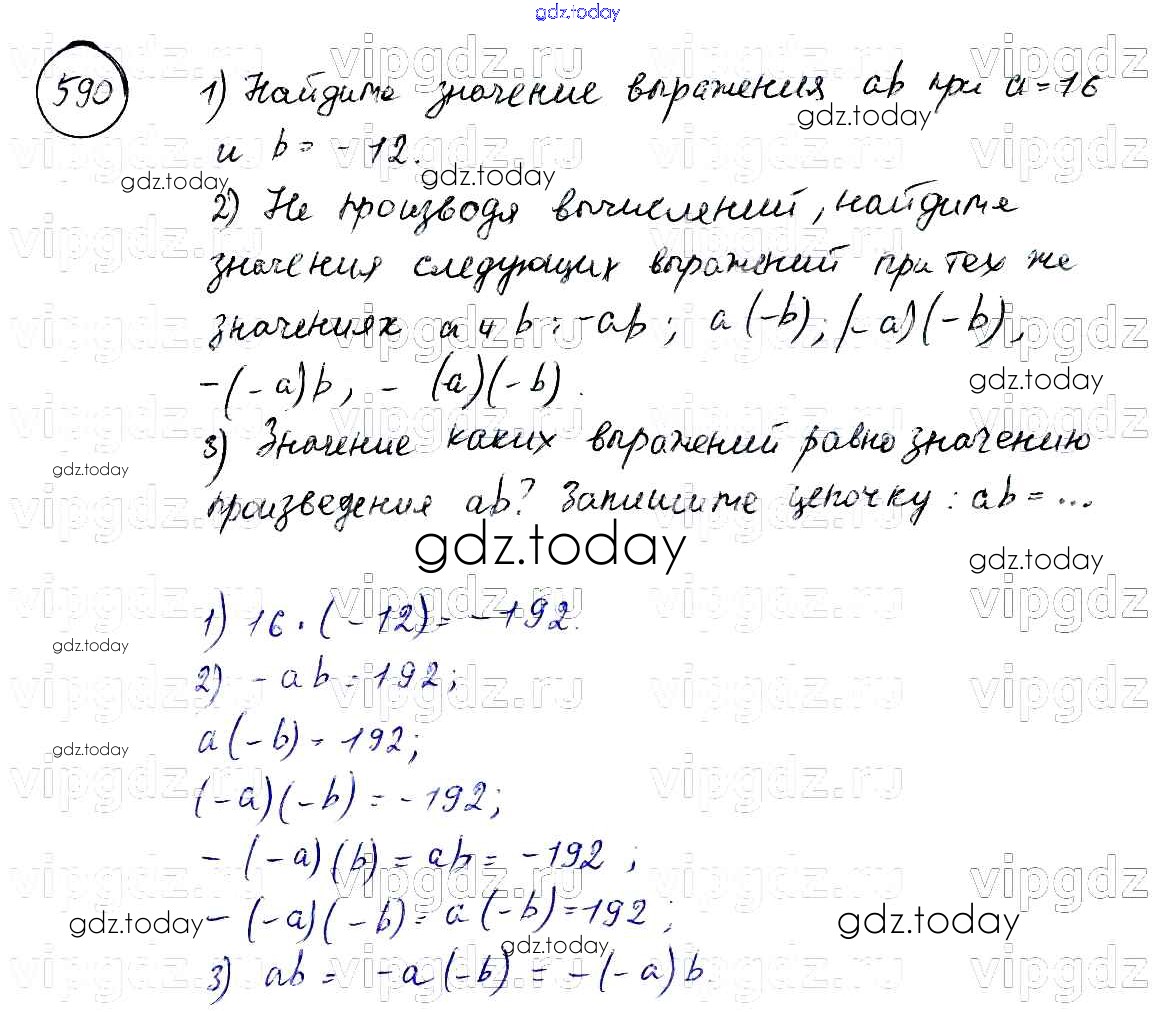 gdz.today
590
1) Найдите значение выражения ab при a = 16
и b = -12.
2) Не производя вычислений, найдите
значения следующих выражений при тех же
значениях a и b: -ab; a(-b); (-a)(-b),
-(-a)b, -(a)(-b).
3) Значение каких выражений равно значению
произведения ab? Запишите цепочку: ab = ...
gdz.today
1) 16 · (-12) = -192.
2) -ab = 192;
a(-b) = 192;
(-a)(-b) = -192;
-(-a)(b) = ab = -192;
-(-a)(-b) = a(-b) = 192;
3) ab = -a(-b) = -(-a)b.